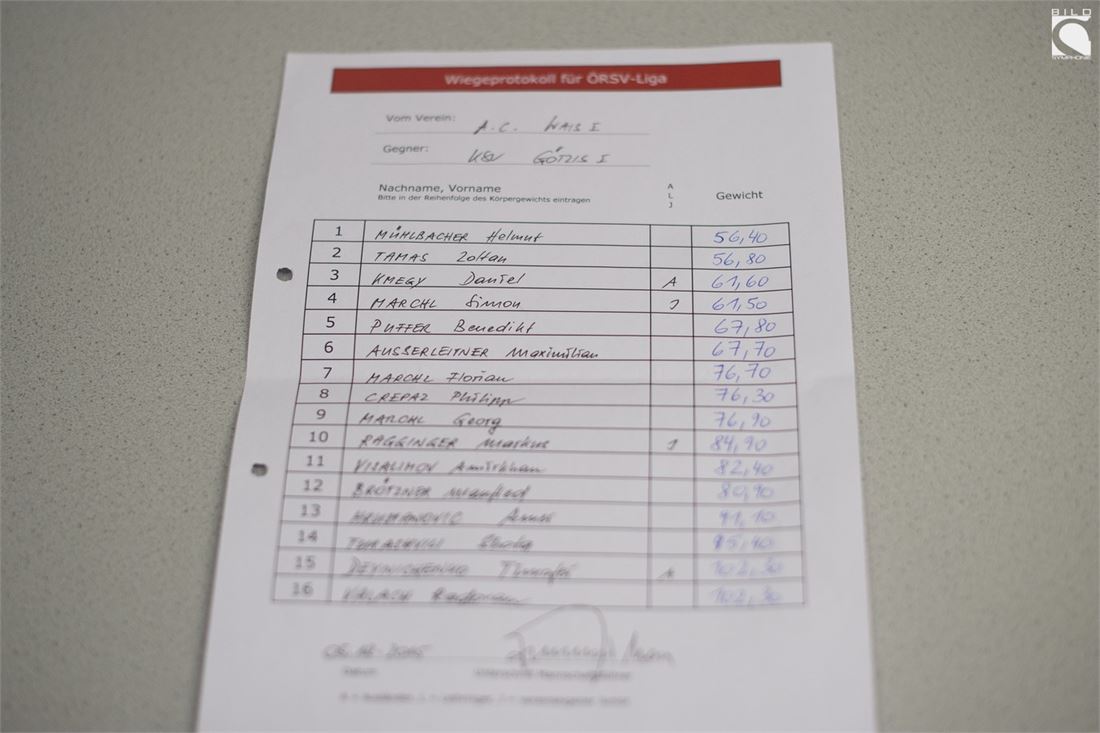 BILD
SYMPHONIE
Wiegeprotokoll für ÖRSV-Liga
Vom Verein: A.C. WALS I
Gegner: KSV GÖTZIS I
Nachname, Vorname A L J Gewicht
Bitte in der Reihenfolge des Körpergewichts eintragen
1 MÜHLBACHER Helmut 56,40
2 TAMAS Zoltan 56,80
3 KMEGY Daniel A 61,60
4 MARCHL Simon J 61,50
5 PUFFER Benedikt 67,80
6 AUSSERLEITNER Maximilian 67,70
7 MARCHL Florian 76,70
8 CREPAZ Philipp 76,30
9 MARCHL Georg 76,90
10 RAGGINGER Markus J 84,90
11 VISALIMOV Amirkhan 82,40
12 BRÖTZNER Manfred 80,90
13 91,10
14 95,40
15 A 102,30
16 102,30
Datum